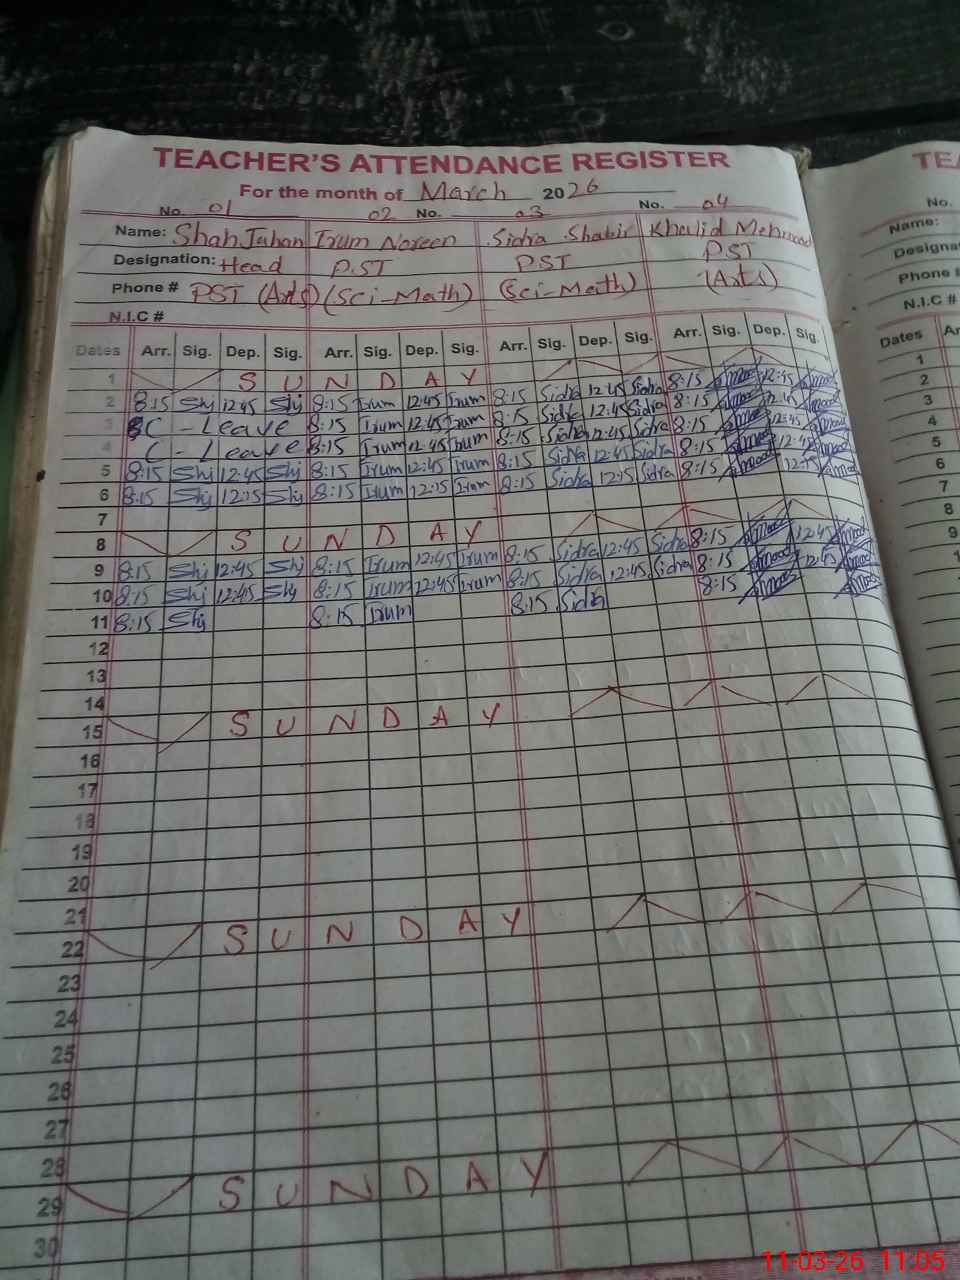 TEACHER'S ATTENDANCE REGISTER
For the month of March 2026
No. 01 02 No. 03 No. 04
Name: Shah Jahan Irum Noreen Sidra Shabir Khalid Mehmood
Designation: Head PST PST PST
Phone # PST (Arts) (Sci-Math) (Sci-Math) (Arts)
N.I.C #
Dates Arr. Sig. Dep. Sig. Arr. Sig. Dep. Sig. Arr. Sig. Dep. Sig. Arr. Sig. Dep. Sig.
1 SUNDAY
2 8:15 Shj 12:45 Shj 8:15 Irum 12:45 Irum 8:15 Sidra 12:45 Sidra 8:15 12:45
3 C-Leave 8:15 Irum 12:45 Irum 8:15 Sidra 12:45 Sidra 8:15 12:45
4 C-Leave 8:15 Irum 12:45 Irum 8:15 Sidra 12:45 Sidra 8:15 12:45
5 8:15 Shj 12:45 Shj 8:15 Irum 12:45 Irum 8:15 Sidra 12:45 Sidra 8:15 12:45
6 8:15 Shj 12:15 Shj 8:15 Irum 12:15 Irum 8:15 Sidra 12:15 Sidra 8:15 12:15
7
8 SUNDAY
9 8:15 Shj 12:45 Shj 8:15 Irum 12:45 Irum 8:15 Sidra 12:45 Sidra 8:15 12:45
10 8:15 Shj 12:45 Shj 8:15 Irum 12:45 Irum 8:15 Sidra 12:45 Sidra 8:15 12:45
11 8:15 Shj 8:15 Irum 8:15 Sidra 8:15
12
13
14
15 SUNDAY
16
17
18
19
20
21
22 SUNDAY
23
24
25
26
27
28
29 SUNDAY
30
TEA
No.
Name:
Designa
Phone #
N.I.C #
Dates Ar
1
2
3
4
5
6
7
8
9
11-03-26 11:05